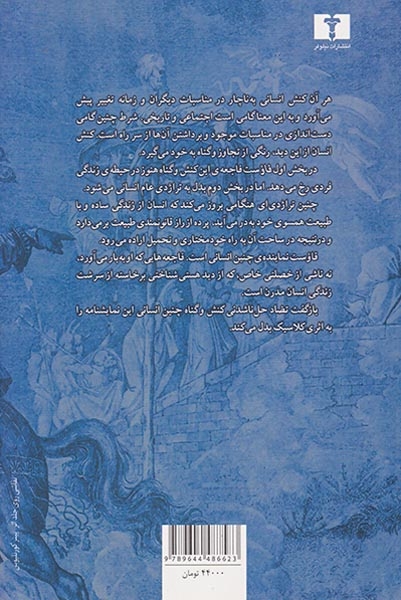 انتشارات نیلوفر
هر آن کنش انسانی به‌ناچار در مناسبات دیگران و زمانه تغییر پیش
می‌آورد و به این معنا گامی است اجتماعی و تاریخی. شرط چنین گامی
دست‌اندازی در مناسبات موجود و برداشتن آن‌ها از سر راه است. کنش
انسان از این دید، رنگی از تجاوز و گناه به خود می‌گیرد.
در بخش اول فاؤست فاجعه‌ی این کنش و گناه هنوز در حیطه‌ی زندگی
فردی رخ می‌دهد. اما در بخش دوم بدل به تراژدی عام انسانی می‌شود.
چنین تراژدی‌ای هنگامی بروز می‌کند که انسان از زندگی ساده و با
طبیعت همسوی خود به در می‌آید، پرده از راز قانونمندی طبیعت بر می‌دارد
و در نتیجه در ساحت آن به راه خودمختاری و تحمیل اراده می‌رود.
فاؤست نماینده‌ی چنین انسانی است. فاجعه‌هایی که او به بار می‌آورد،
نه ناشی از خصلتی خاص، که از دید هستی شناختی برخاسته از سرشت
زندگی انسان مدرن است.
بازگفت تضاد حل‌ناشدنی کنش و گناه چنین انسانی این نمایشنامه را
به اثری کلاسیک بدل می‌کند.
نقاشی روی جلد اثر پیتر کورنلیوس
9 789644 486623
۴۴۰۰۰ تومان